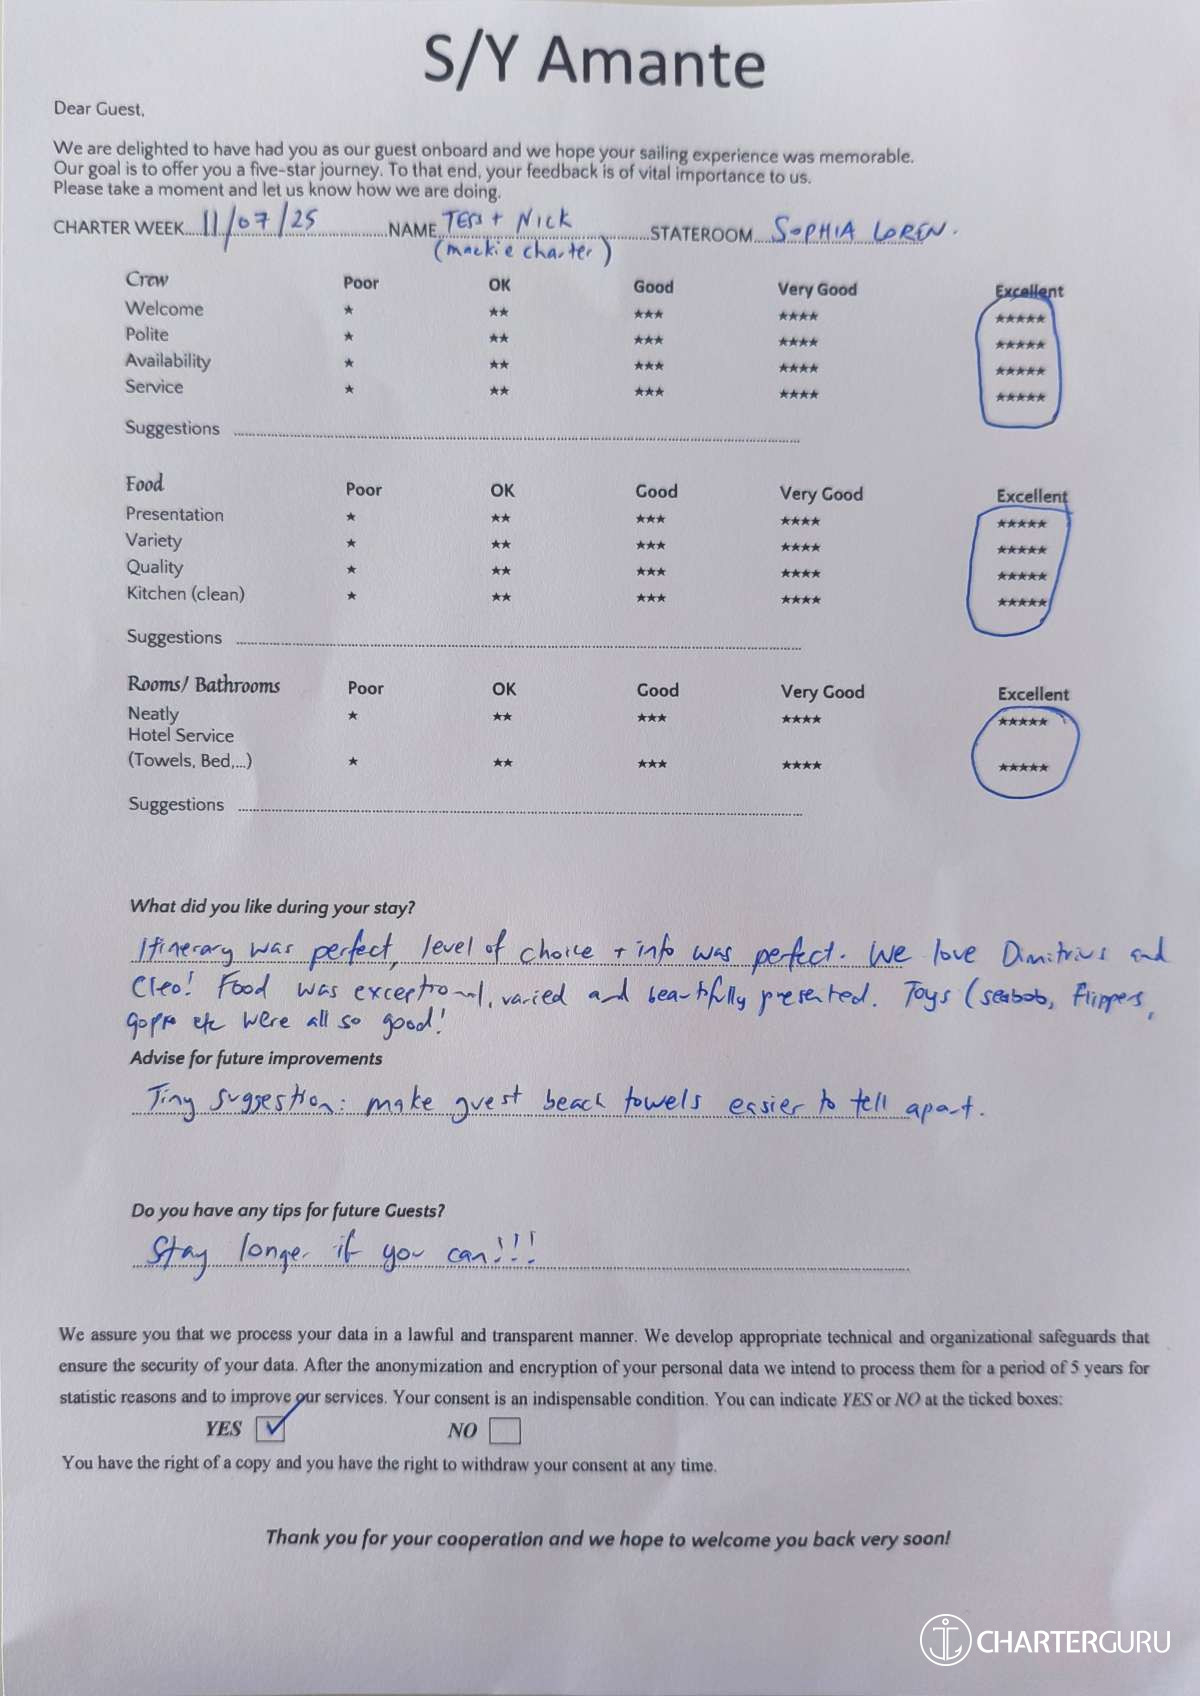 S/Y Amante
Dear Guest,
We are delighted to have had you as our guest onboard and we hope your sailing experience was memorable.
Our goal is to offer you a five-star journey. To that end, your feedback is of vital importance to us.
Please take a moment and let us know how we are doing.
CHARTER WEEK 11/07/25 NAME TESS + NICK STATEROOM SOPHIA LOREN.
(mackie charter)
Crew Poor OK Good Very Good Excellent
Welcome ★ ★★ ★★★ ★★★★ ★★★★★
Polite ★ ★★ ★★★ ★★★★ ★★★★★
Availability ★ ★★ ★★★ ★★★★ ★★★★★
Service ★ ★★ ★★★ ★★★★ ★★★★★
Suggestions
Food Poor OK Good Very Good Excellent
Presentation ★ ★★ ★★★ ★★★★ ★★★★★
Variety ★ ★★ ★★★ ★★★★ ★★★★★
Quality ★ ★★ ★★★ ★★★★ ★★★★★
Kitchen (clean) ★ ★★ ★★★ ★★★★ ★★★★★
Suggestions
Rooms/ Bathrooms Poor OK Good Very Good Excellent
Neatly ★ ★★ ★★★ ★★★★ ★★★★★
Hotel Service
(Towels, Bed,...) ★ ★★ ★★★ ★★★★ ★★★★★
Suggestions
What did you like during your stay?
Itinerary was perfect, level of choice + info was perfect. We love Dimitrius and
Cleo! Food was exceptional, varied and beautifully presented. Toys (seabob, flippers,
gopro etc were all so good!
Advise for future improvements
Tiny suggestion: make guest beach towels easier to tell apart.
Do you have any tips for future Guests?
Stay longer if you can!!!
We assure you that we process your data in a lawful and transparent manner. We develop appropriate technical and organizational safeguards that
ensure the security of your data. After the anonymization and encryption of your personal data we intend to process them for a period of 5 years for
statistic reasons and to improve our services. Your consent is an indispensable condition. You can indicate YES or NO at the ticked boxes:
YES ✓ NO
You have the right of a copy and you have the right to withdraw your consent at any time.
Thank you for your cooperation and we hope to welcome you back very soon!
CHARTERGURU